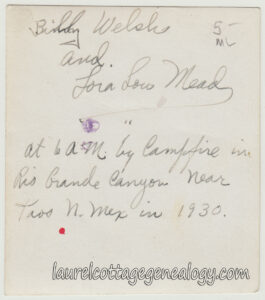 Biddy Welsh
5-
ML
and.
Lora Lois Mead
"
at 6 A.M. by Campfire in
Rio Grande Canyon Near
Taos N. Mex in 1930.
laurelcottagegenealogy.com